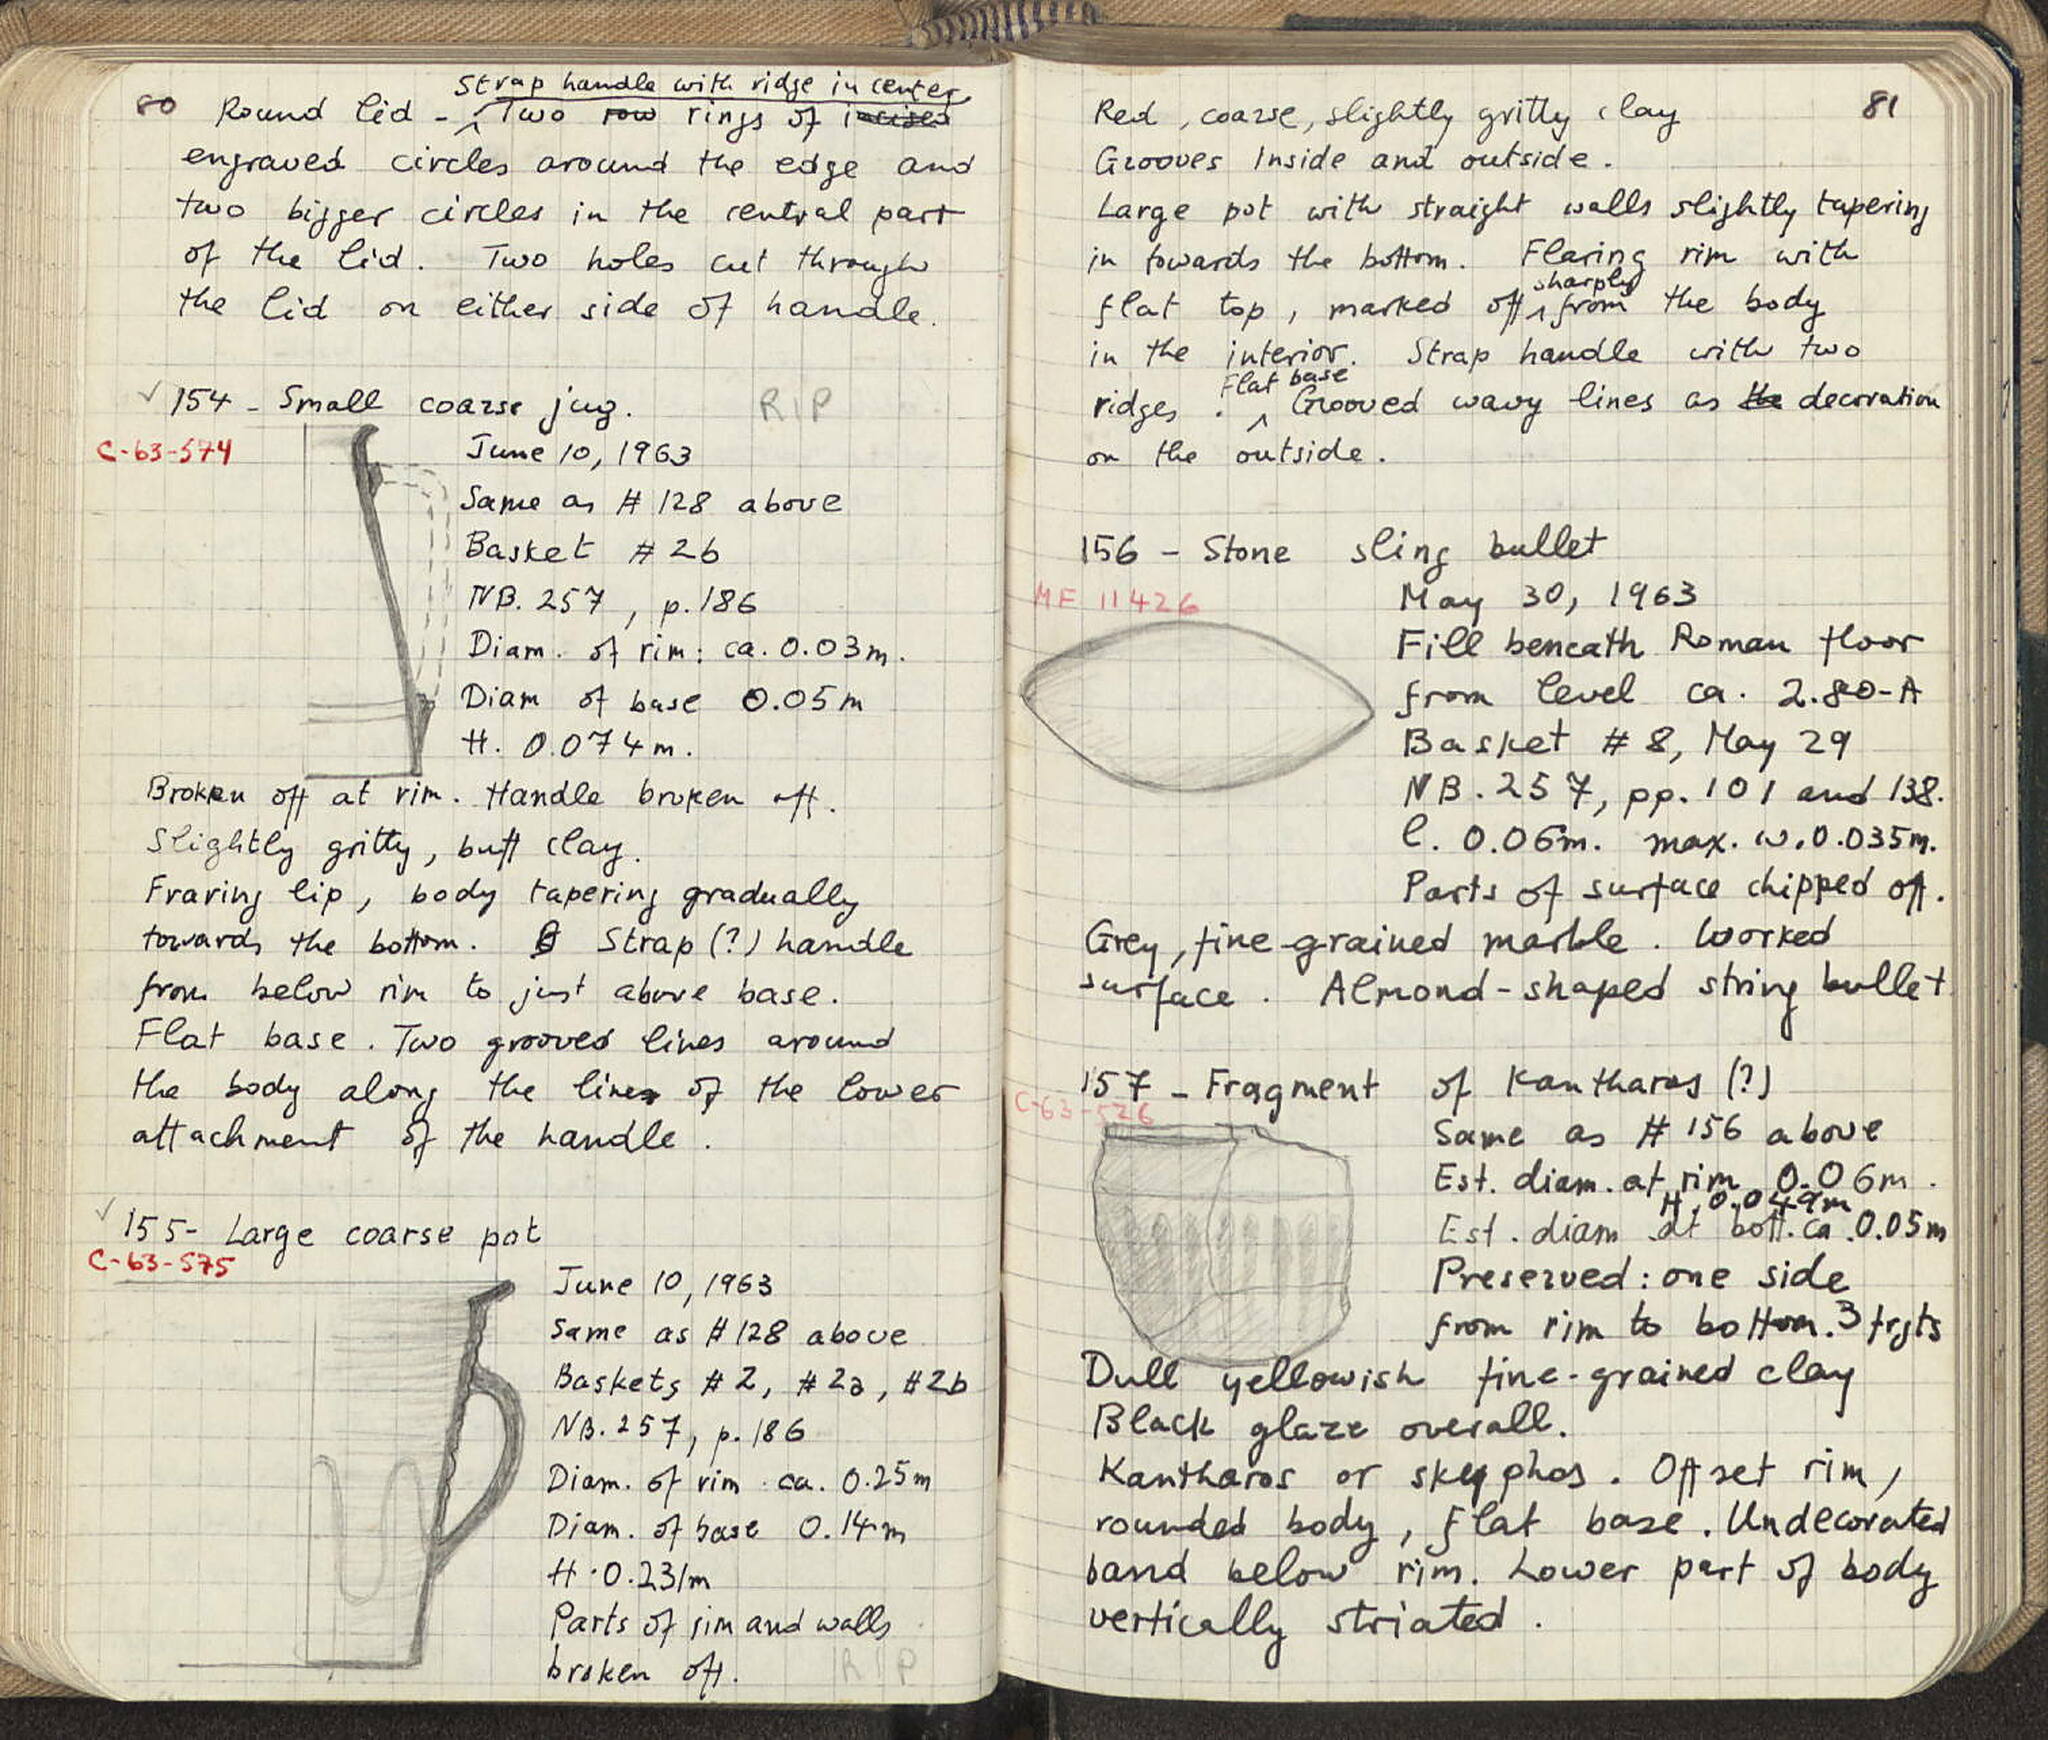 80
Strap handle with ridge in center
Round lid - Two row rings of incised
engraved circles around the edge and
two bigger circles in the central part
of the lid. Two holes cut through
the lid on either side of handle.
✓ 154 - Small coarse jug. RIP
C-63-574
June 10, 1963
Same as # 128 above
Basket # 2b
NB. 257, p. 186
Diam. of rim: ca. 0.03m.
Diam of base 0.05m
H. 0.074m.
Broken off at rim. Handle broken off.
Slightly gritty, buff clay.
Fraring lip, body tapering gradually
towards the bottom. Strap (?) handle
from below rim to just above base.
Flat base. Two grooved lines around
the body along the lines of the lower
attachment of the handle.
✓ 155 - Large coarse pot
C-63-575
June 10, 1963
Same as # 128 above
Baskets # 2, # 2a, # 2b
NB. 257, p. 186
Diam. of rim ca. 0.25m
Diam. of base 0.14m
H. 0.231m
Parts of rim and walls
broken off. RIP
81
Red, coarse, slightly gritty clay
Grooves inside and outside.
Large pot with straight walls slightly tapering
in towards the bottom. Flaring rim with
sharply
flat top, marked off from the body
in the interior. Strap handle with two
Flat base
ridges. Grooved wavy lines as the decoration
on the outside.
156 - Stone sling bullet
MF 11426
May 30, 1963
Fill beneath Roman floor
from level ca. 2.80-A
Basket # 8, May 29
NB. 257, pp. 101 and 138.
l. 0.06m. max. w. 0.035m.
Parts of surface chipped off.
Grey, fine-grained marble. Worked
surface. Almond-shaped string bullet
157 - Fragment of Kantharos (?)
C-63-526
Same as # 156 above
Est. diam. at rim 0.06m.
H. 0.049m
Est. diam at bott. ca. 0.05m
Preserved: one side
from rim to bottom. 3 frgts
Dull yellowish fine-grained clay
Black glaze overall.
Kantharos or skyphos. Offset rim,
rounded body, flat base. Undecorated
band below rim. Lower part of body
vertically striated.